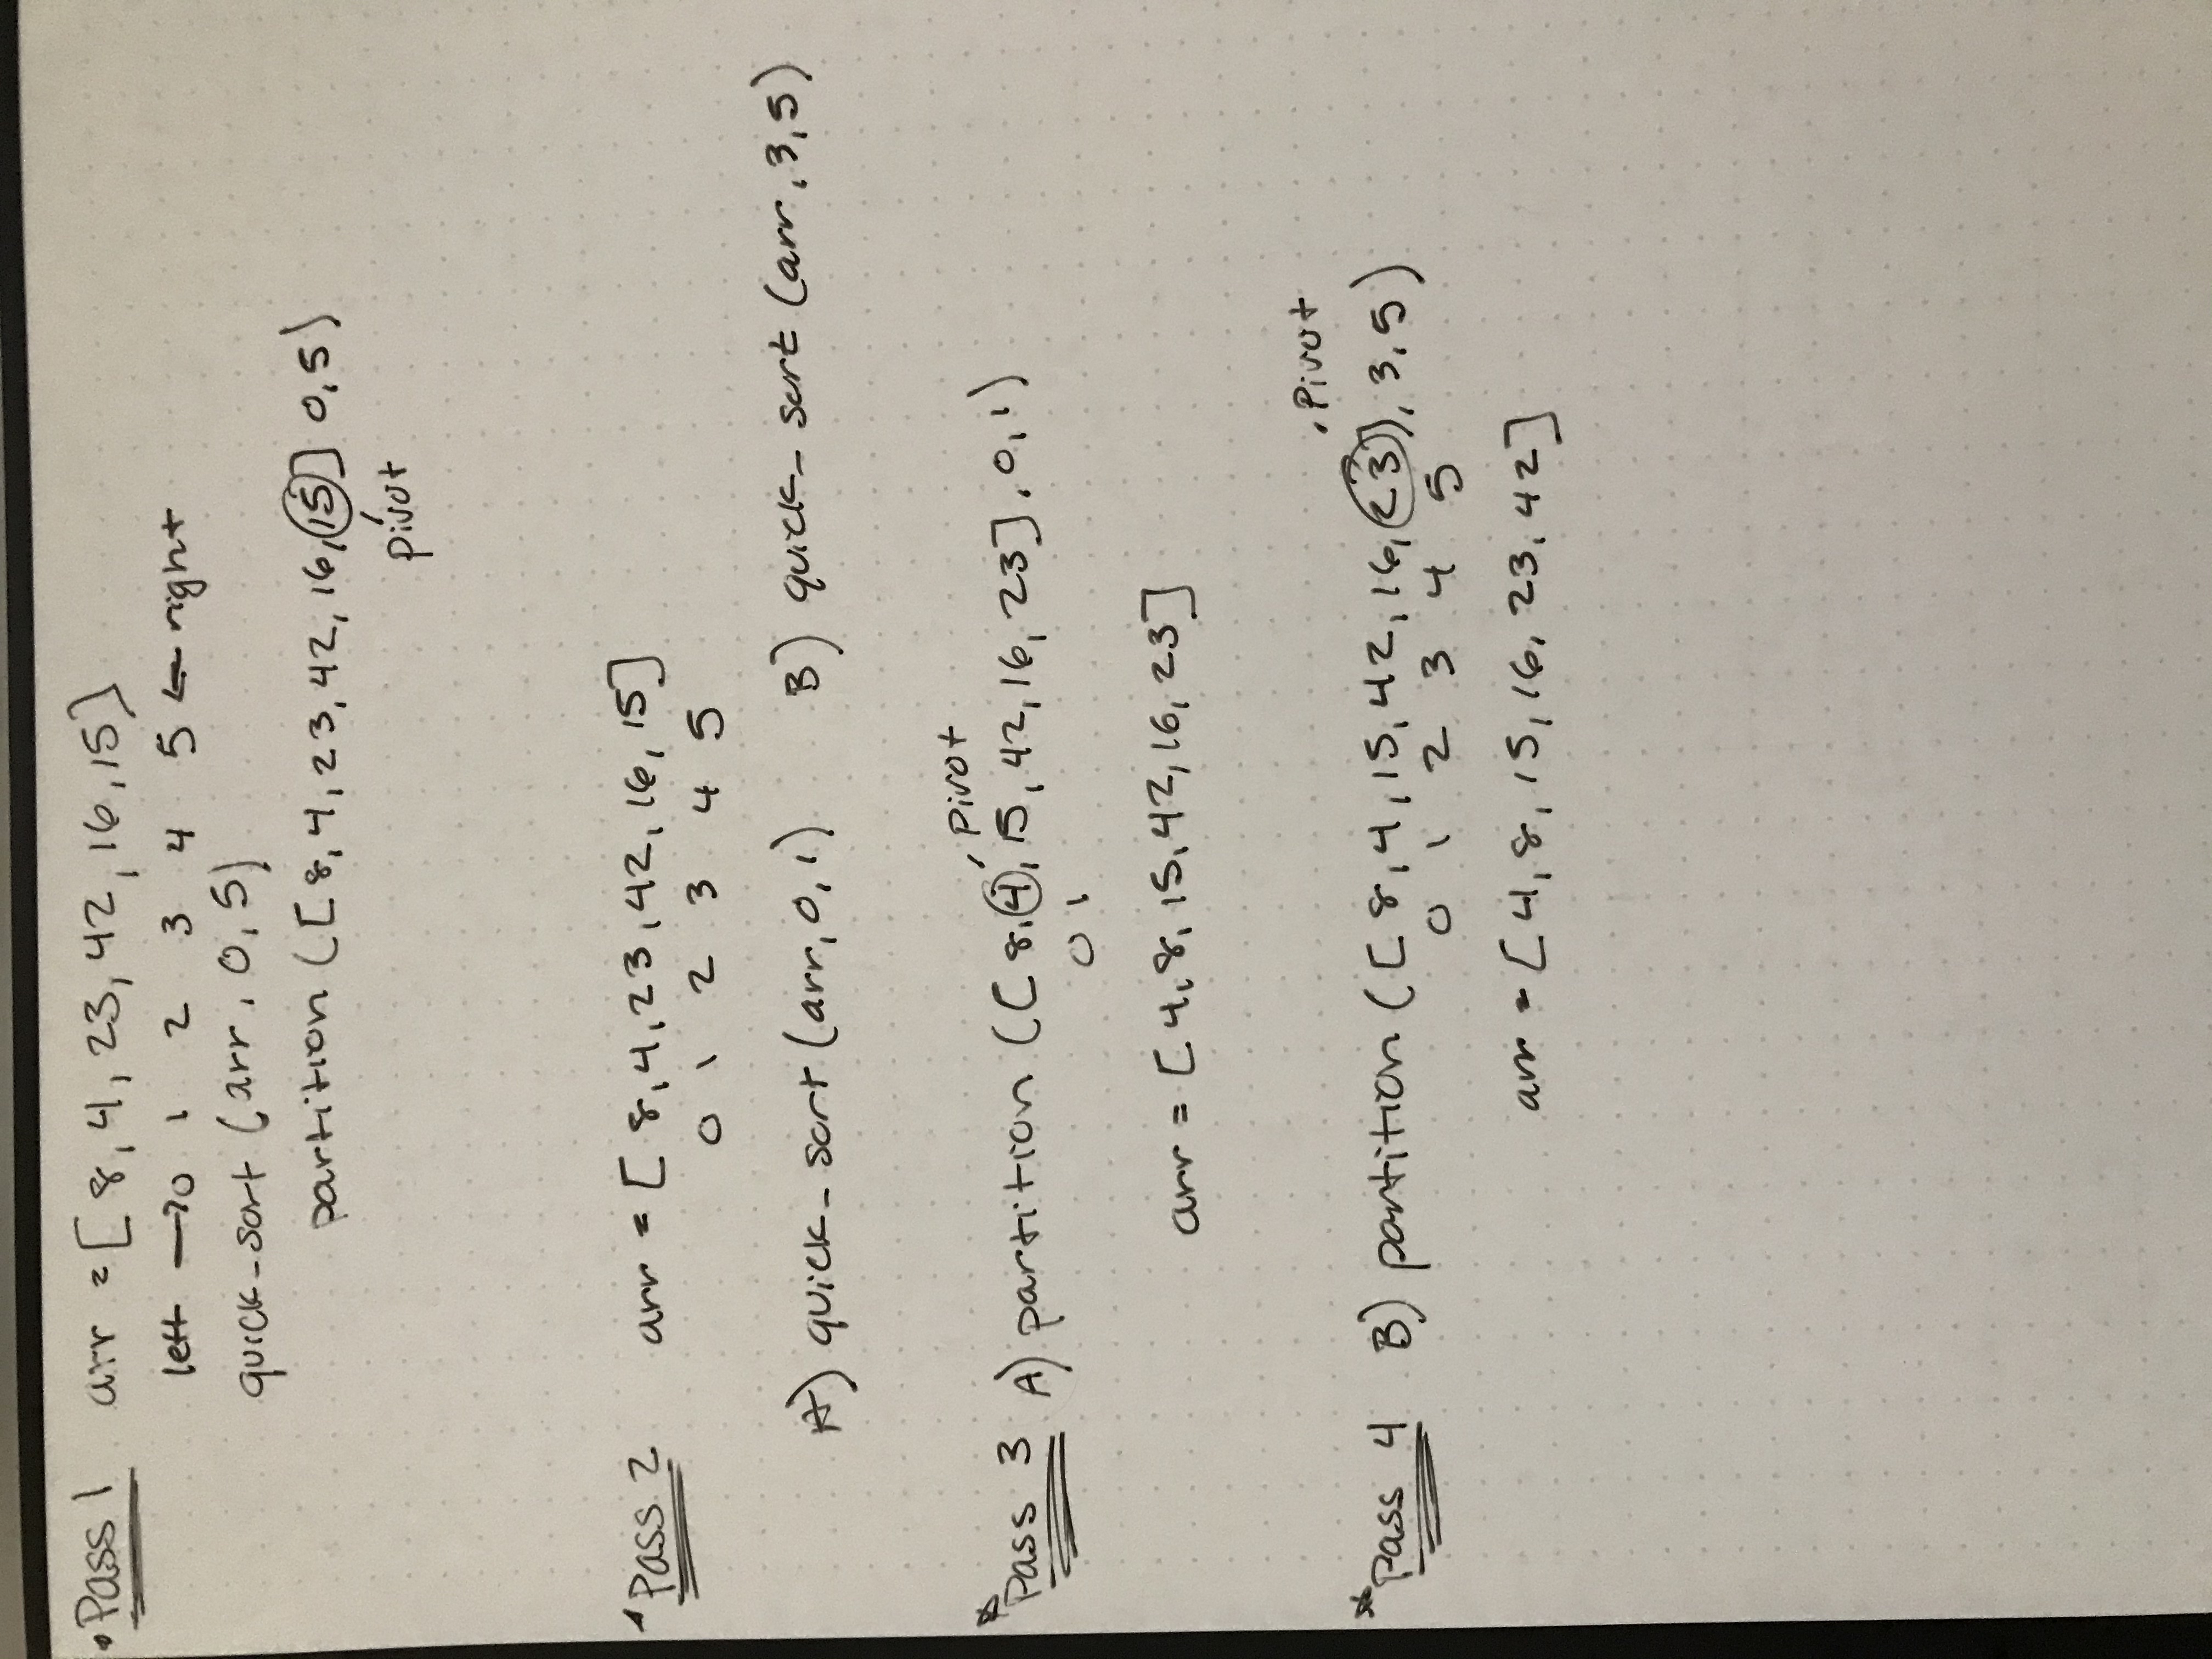 Pass 1 arr = [8, 4, 23, 42, 16, 15]
left → 0 1 2 3 4 5 ← right
quick_sort (arr, 0, 5)
partition ([8, 4, 23, 42, 16, 15] 0, 5)
pivot
Pass 2 arr = [8, 4, 23, 42, 16, 15]
0 1 2 3 4 5
A) quick_sort (arr, 0, 1) B) quick_sort (arr, 3, 5)
Pivot
Pass 3 A) partition ([8, 4, 15, 42, 16, 23], 0, 1)
0 1
arr = [4, 8, 15, 42, 16, 23]
Pivot
Pass 4 B) partition ([8, 4, 15, 42, 16, 23], 3, 5)
0 1 2 3 4 5
arr = [4, 8, 15, 16, 23, 42]